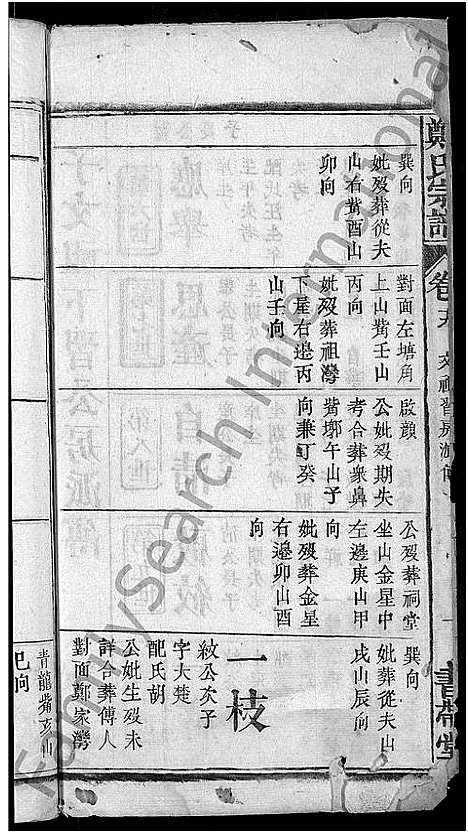 鄭氏宗譜
卷
書帶堂
巽向
妣歿葬從夫
山右觜酉山
卯向
對面左塘角
上山觜壬山
丙向
妣歿葬祖灣
下屋右邊丙
山壬向
啟顔
公妣歿期失
考合葬衆鼻
觜塚午山子
向兼丁癸
公歿葬祠堂
坐山金星中
左邊庚山甲
向
妣歿葬金星
右邊卯山酉
向
巽向
妣葬從夫山
戌山辰向
一枝
紋公次子
字大楚
配氏胡
公妣生歿未
詳合葬傅人
對面鄭家灣
青龍觜亥山
巳向
FamilySearch International